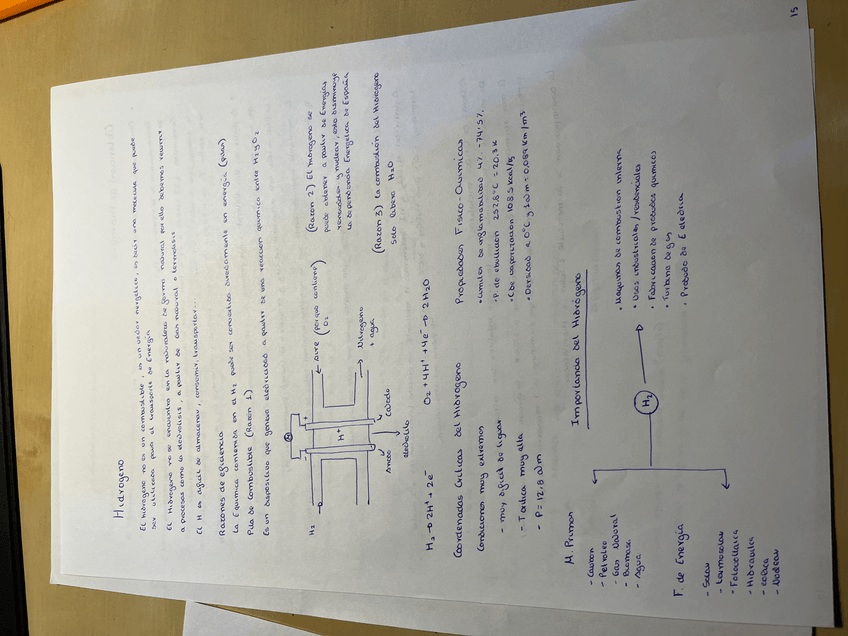 Hidrogeno
El hidrogeno no es un combustible, es un vector energético, es decir una molecula que puede
ser utilizada para el transporte de Energia
El Hidrogeno no se encuentra en la naturaleza de forma natural por ello debemos recurrir
a procesos como la electrolisis, a partir de Gas natural o termolisis
El H es dificil de almacenar, consumir, transportar...
Razones de eficiencia
La E quimica contenida en el H2 puede ser convertida directamente en energia (pilas)
Pila de combustible (Razon 1)
Es un dispositivo que genera electricidad a partir de una reaccion quimica entre H2 y O2
H2
- +
H+
Anodo
Catodo
electrolito
← aire (porque contiene)
O2
→ Nitrogeno
+ agua
(Razon 2) El hidrogeno se
puede obtener a partir de Energias
renovables y nuclear, esto disminuye
la dependencia Energetica de España
(Razon 3) La combustión del Hidrogeno
solo libera H2O
H2 → 2H+ + 2e-
O2 + 4H+ + 4e- → 2H2O
Coordenadas Criticas del Hidrogeno
Condiciones muy extremas
- muy dificil de licuar
- T critica muy alta
- P = 12,8 atm
Propiedades Fisico-Quimicas
• P de ebullicion 252,8°C = 20,3 K
• C de vaporizacion 108,5 kcal/kg
• Densidad a 0°C y 1 atm = 0,089 km/m3
Importancia del Hidrógeno
M. Primas
- Carbon
- Petroleo
- Gas Natural
- Biomasa
- Agua
F. de Energia
- Solar
- termosolar
- Fotovoltaica
- Hidraulica
- eolica
- Nuclear
H2
• Maquinas de combustion interna
• Usos industriales/residenciales
• Fabricacion de productos quimicos
• Turbina de gas
• Produccion de E eléctrica
15